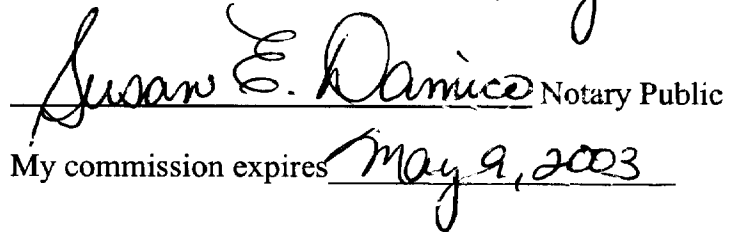 Susan E. Damico Notary Public
My commission expires May 9, 2003